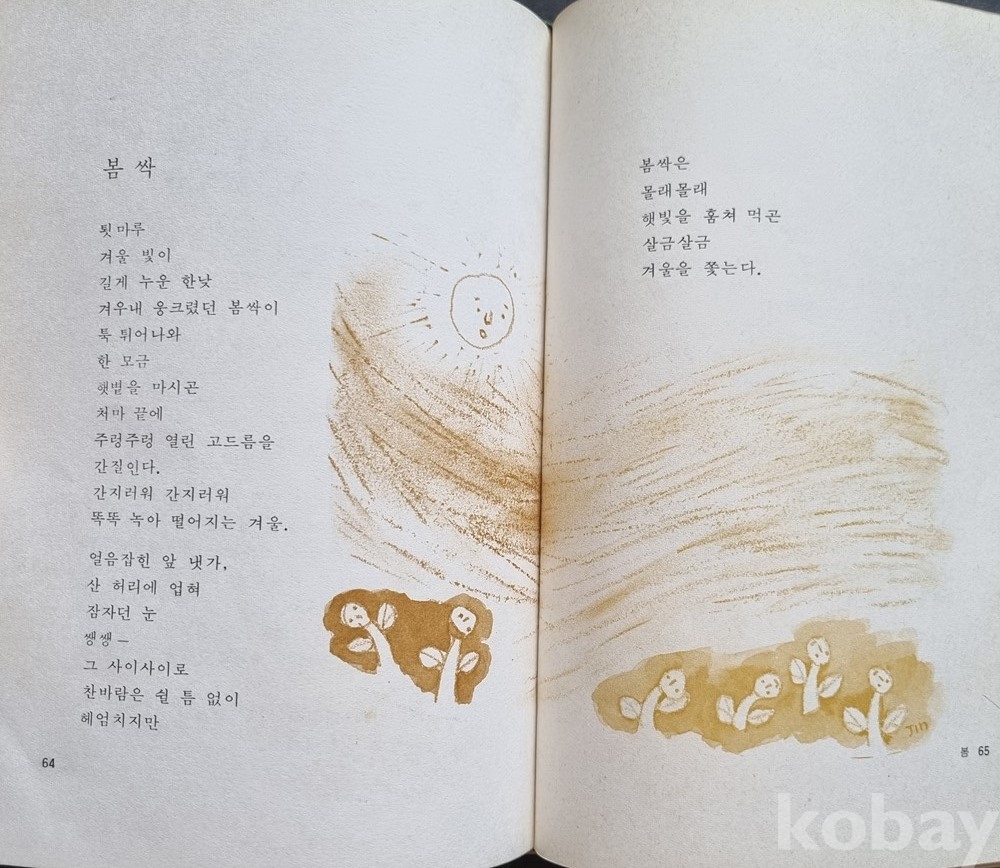 봄 싹
툇마루
겨울 빛이
길게 누운 한낮
겨우내 웅크렸던 봄싹이
툭 튀어나와
한 모금
햇볕을 마시곤
처마 끝에
주렁주렁 열린 고드름을
간질인다.
간지러워 간지러워
똑똑 녹아 떨어지는 겨울.
얼음잡힌 앞 냇가,
산 허리에 업혀
잠자던 눈
쌩쌩—
그 사이사이로
찬바람은 쉴 틈 없이
헤엄치지만
64
봄싹은
몰래몰래
햇빛을 훔쳐 먹곤
살금살금
겨울을 쫓는다.
JIN
봄 65
kobay